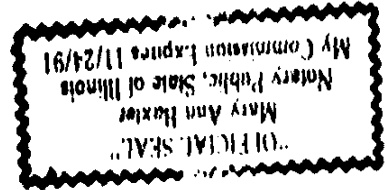 "OFFICIAL SEAL"
Mary Ann Baxter
Notary Public, State of Illinois
My Commission Expires 11/24/91